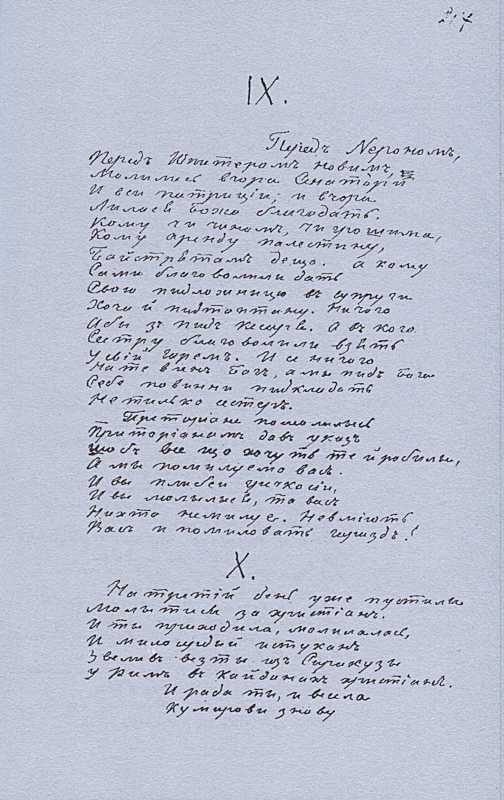 217
IX.
Передъ Нерономъ,
Передъ Юпитеромъ новимъ,
Молились вчора Сенаторы
И вси патриціи; и вчора
Лилася Божа благодать.
Кому чи чиномъ, чи грошима,
Кому аренду палестину,
Байстрятамъ дещо. а кому
Сами благоволили дать
Свою пидложницю въ супруги
Хоча й пидтоптану. Ничого
Абы зъ пидъ кесаря. А въ кого
Сестру благоволили взять
У свій гаремъ. И се ничого
На те винъ Богъ, а мы пидъ Бога
Себе повинни пидкладать
Не тилько сестеръ.
Преторіане помолились
Преторіанамъ давъ указъ
Щобъ все що хочуть те й робили,
А мы помилуемо васъ.
И вы плебеи гречкосіи,
И вы молылись, та васъ
Нихто не милує. Невміють
Васъ и помиловать гараздъ!
X.
На третій день уже пустили
Молытися за христіанъ.
И ты приходила, молилася,
И милосердый истуканъ
Звеливъ везти изъ Сиракузы
У римъ въ кайданахъ христіанъ.
И рада ты, и весела
Кумирови знову